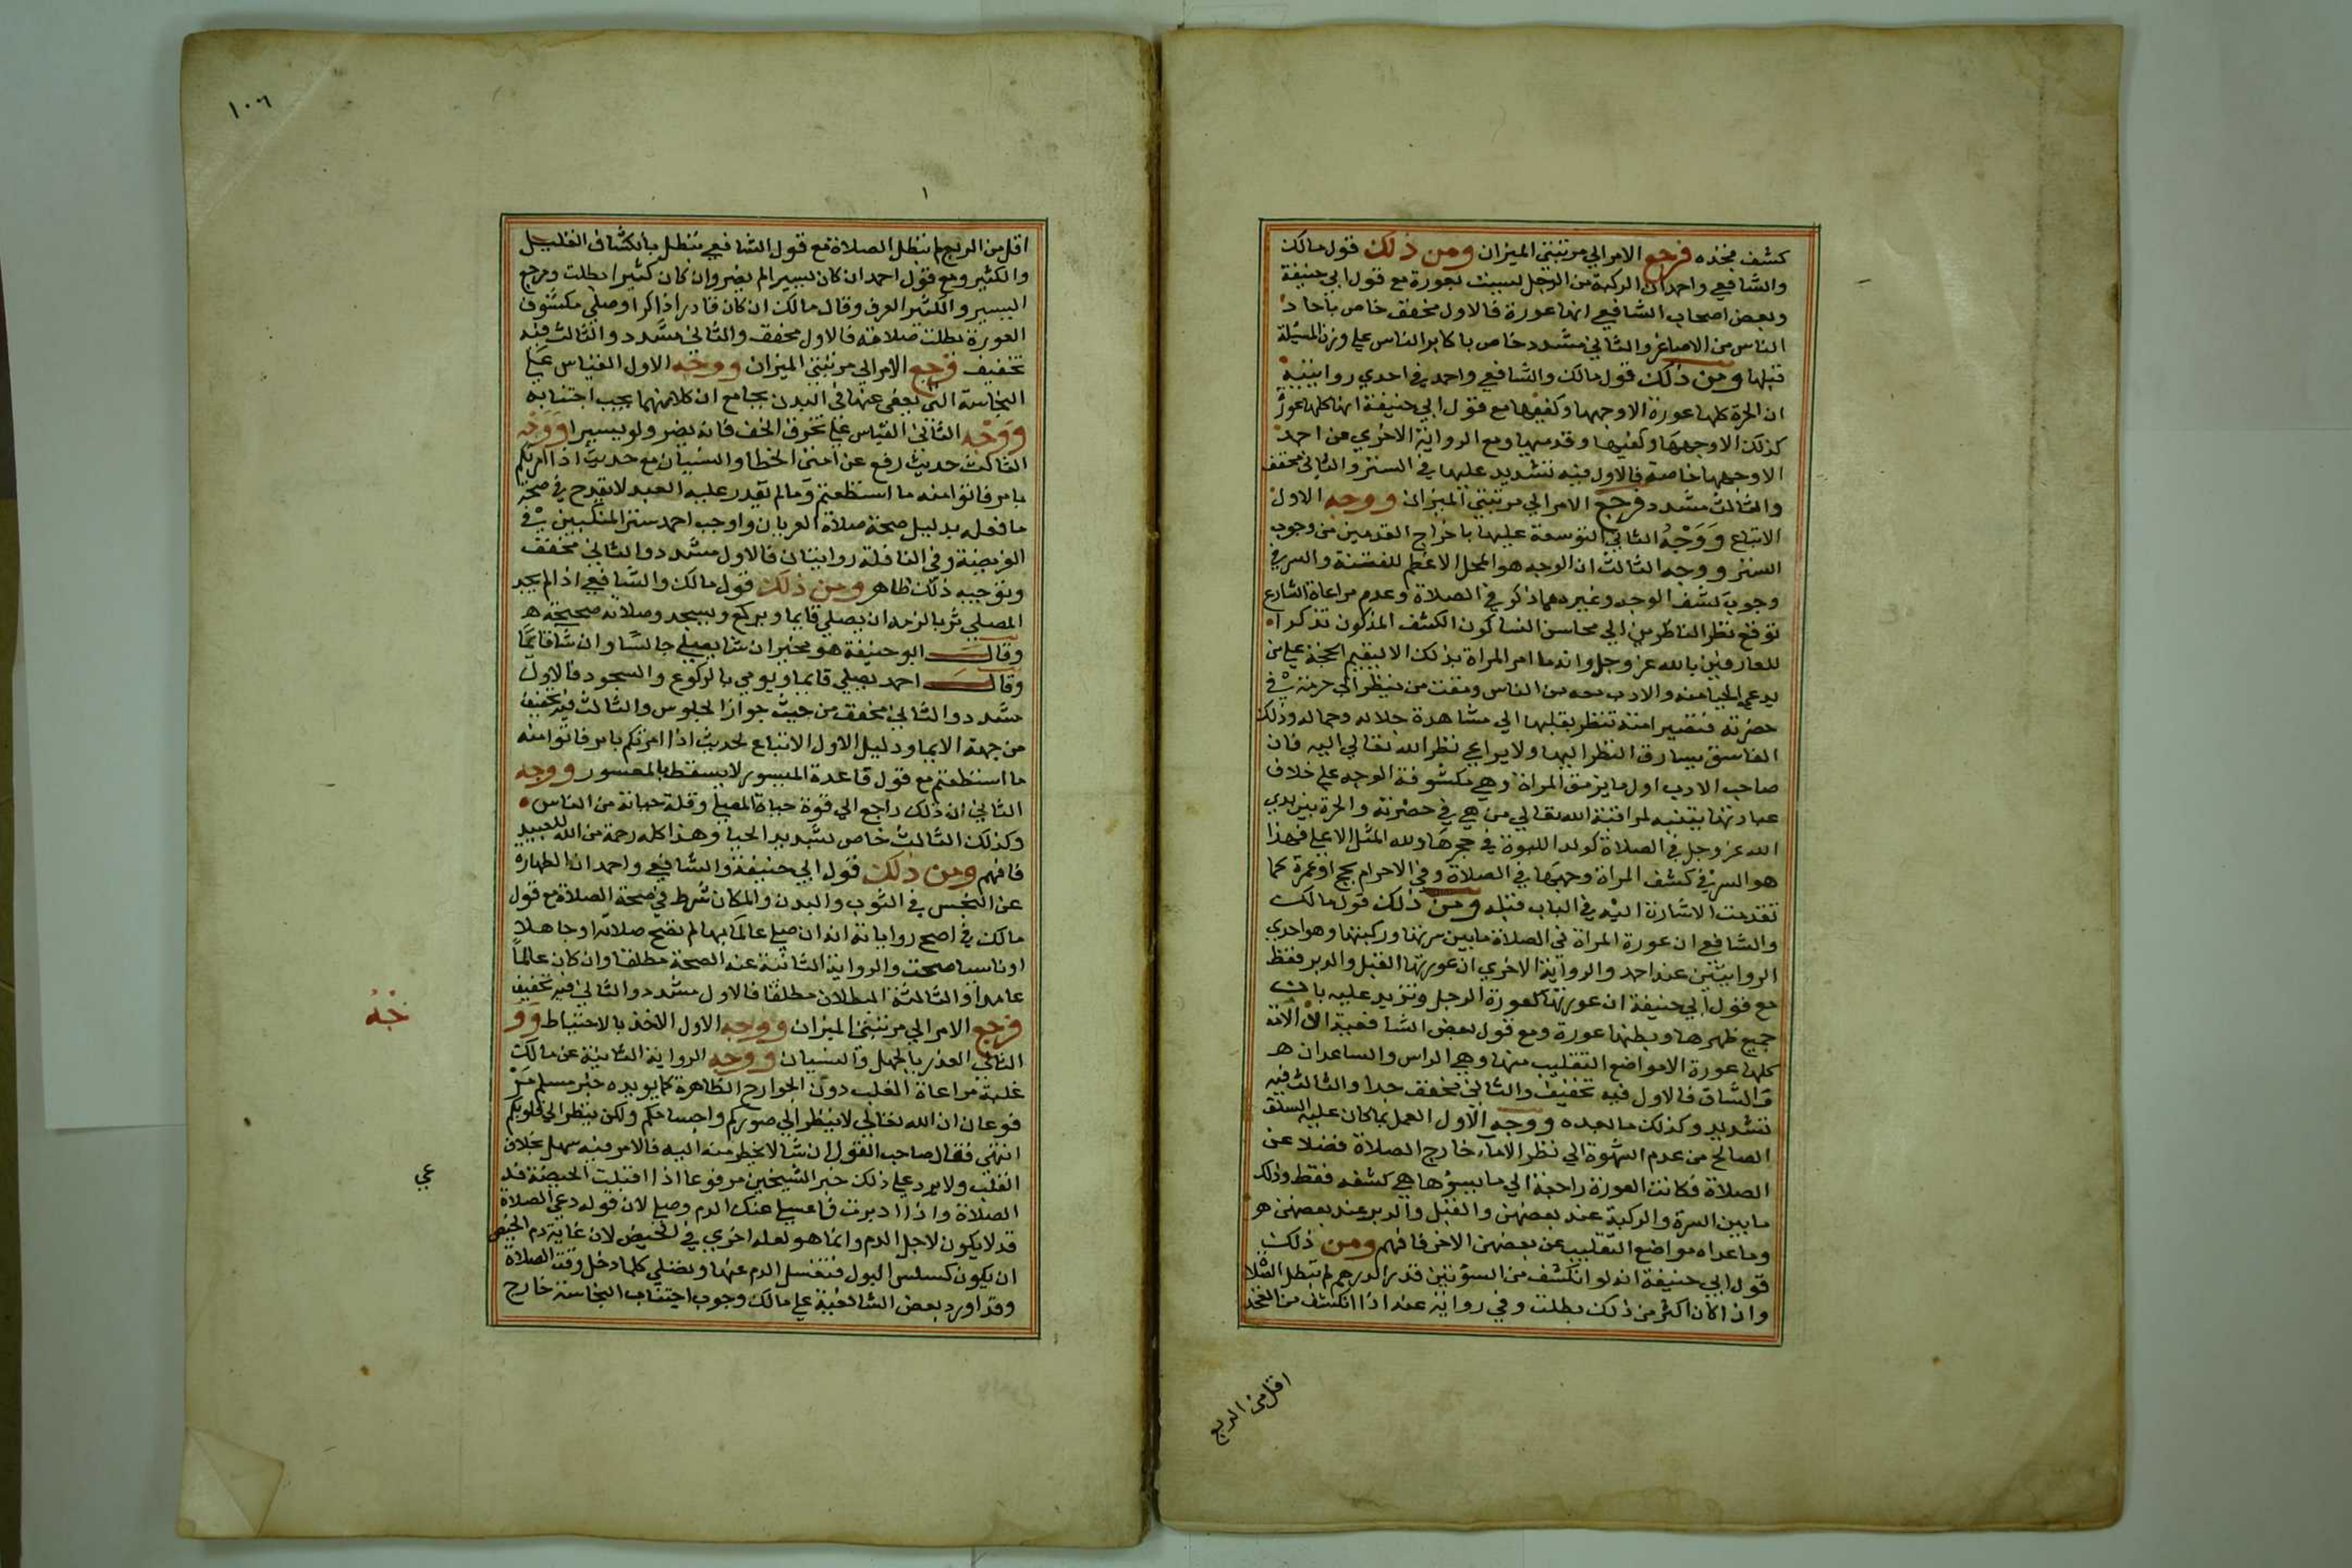 كشف فخذه فرجع الامر الي مرتبتي الميزان ومن ذلك قول مالك
والشافعي واحمد ان الركبة من الرجل ليست بعورة مع قول ابي حنيفة
وبعض اصحاب الشافعي انها عورة فالاول مخفف خاص باحاد
الناس من الاصاغر والثاني مشدد خاص باكابر الناس علي وزن المسئلة
قبلها ومن ذلك قول مالك والشافعي واحمد في احدي روايتيه
ان الحرة كلها عورة الا وجهها وكفيها مع قول ابي حنيفة انها كلها عورة
كذلك الا وجهها وكفيها وقدميها ومع الرواية الاخري عن احمد
الا وجهها خاصة فالاول فيه تشديد عليها في الستر والثاني مخفف
والثالث مشدد فرجع الامر الي مرتبتي الميزان ووجه الاول
الاتباع ووجه الثاني التوسعة عليها باخراج القدمين من وجوب
الستر ووجه الثالث ان الوجه هو المحل الاعظم للفتنة والسر في
وجوب كشف الوجه وغيره مما ذكر في الصلاة وعدم مراعاة الشارع
توقع نظر الناظرين الي محاسن النسا كون الكشف المذكور تذكرا
للعارفين بالله عز وجل وانه ما امر المراة بذلك الا ليقيم الحجة علي من
يدعي الحيا منه والادب معه من الناس ومقت من ينظر الي حرمته في
حضرته فتصير امته تنظر بقلبها الي مشاهدة جلاله وجماله وذلك
الفاسق يسارق النظر اليها ولا يراعي نظر الله تعالي اليه فان
صاحب الادب اول ما يرمق المراة وهي مكشوفة الوجه علي خلاف
عادتها يتنبه لمراقبة الله تعالي من هي في حضرته والحرة بين يدي
الله عز وجل في الصلاة كولد اللبوة في حجرها ولله المثل الاعلي فهذا
هو السر في كشف المراة وجهها في الصلاة وفي الاحرام بحج او عمرة كما
تقدمت الاشارة اليه في الباب قبله ومن ذلك قول مالك
والشافعي ان عورة المراة في الصلاة ما بين سرتها وركبتها وهو احدي
الروايتين عند احمد والرواية الاخري ان عورتها القبل والدبر فقط
مع قول ابي حنيفة ان عورتها كعورة الرجل وتزيد عليه بان
جميع ظهرها وبطنها عورة ومع قول بعض الشافعية ان الامة
كلها عورة الا مواضع التقليب منها وهي الراس والساعدان
والساق فالاول فيه تخفيف والثاني مخفف جدا والثالث فيه
تشديد وكذلك ما بعده ووجه الاول العمل بما كان عليه السلف
الصالح من عدم الشهوة الي نظر الاماء خارج الصلاة فضلا عن
الصلاة فكانت العورة راجعة الي ما يسؤها هي كشفه فقط وذلك
ما بين السرة والركبة عند بعضهن والقبل والدبر عند بعضهن
وما عداه مواضع التقليب عن بعضهن الاخر فافهم ومن ذلك
قول ابي حنيفة انه لو انكشف من السؤتين قدر الدرهم لم تبطل الصلا
واذا كان اكثر من ذلك بطلت وفي رواية عنه اذا انكشف من الفخذ
اقل من الربع
١٠٦
اقل من الربع لم تبطل الصلاة مع قول الشافعي تبطل بانكشاف القليل
والكثير ومع قول احمد ان كان يسيرا لم يضر وان كان كثيرا بطلت ومرجع
اليسير والكثير العرف وقال مالك ان كان قادرا ذاكرا وصلي مكشوف
العورة بطلت صلاته فالاول مخفف والثاني مشدد والثالث فيه
تخفيف فرجع الامر الي مرتبتي الميزان ووجه الاول القياس علي
النجاسة التي يعفي عنها في البدن بجامع ان كلا منهما يجب اجتنابه
ووجه الثاني القياس علي تخرق الخف فانه يضر ولو يسيرا ووجه
الثالث حديث رفع عن امتي الخطا والنسيان مع حديث اذا امرتكم
بامر فاتوا منه ما استطعتم وما لم يقدر عليه العبد لا يقدح في صحة
ما فعله بدليل صحة صلاة العريان واوجب احمد ستر المنكبين في
الفريضة وفي النافلة روايتان فالاول مشدد والثاني مخفف
وتوجيه ذلك ظاهر ومن ذلك قول مالك والشافعي اذا لم يجد
المصلي ثوبا لزمه ان يصلي قايما ويركع ويسجد وصلاته صحيحة
وقال ابو حنيفة هو مخير ان شا يصلي جالسا وان شا قايما
وقال احمد يصلي قايما ويومي بالركوع والسجود فالاول
مشدد والثاني مخفف من حيث جواز الجلوس والثالث فيه تخفيف
من جهة الايما ودليل الاول الاتباع لحديث اذا امرتكم بامر فاتوا منه
ما استطعتم مع قول قاعدة الميسور لا يسقط بالمعسور ووجه
الثاني ان ذلك راجع الي قوة حياة المصلي وقلة حيائه من الناس
وكذلك الثالث خاص بشديد الحيا وهذا كله رحمة من الله للعبيد
فافهم ومن ذلك قول ابي حنيفة والشافعي واحمد ان الطهاره
عن النجس في الثوب والبدن والمكان شرط في صحة الصلاة مع قول
مالك في اصح رواياته انه ان صلي عالما بها لم تصح صلاته او جاهلا
او ناسيا صحت والرواية الثانية عنه الصحة مطلقا وان كان عالما
عامدا والثالثة البطلان مطلقا فالاول مشدد والثاني فيه تخفيف
فرجع الامر الي مرتبتي الميزان ووجه الاول الاخذ بالاحتياط وو
جه
الثاني العذر بالجهل والنسيان ووجه الرواية الثانية عن مالك
غلبة مراعاة القلب دون الجوارح الظاهرة كما يويده خبر مسلم مر
فوعا ان الله تعالي لا ينظر الي صوركم واجسامكم ولكن ينظر الي قلوبكم
انتهي فقال صاحب القول ان شا لا يخطر منه اليه فالامر فيه سهل بخلاف
عي
القلب ولا يرد علي ذلك خبر الشيخين مرفوعا اذا اقبلت الحيضة فد
الصلاة واذا ادبرت فاغسلي عنك الدم وصلي لان قوله دعي الصلاة
قد لا يكون لاجل الدم وانما هو لعلة اخري في الحيض لان غاية دم الحيض
ان يكون كسلس البول فتغسل الدم عنها وتصلي كلما دخل وقت الصلاة
وقد اورد بعض الشافعية علي مالك وجوب اجتناب النجاسة خارج